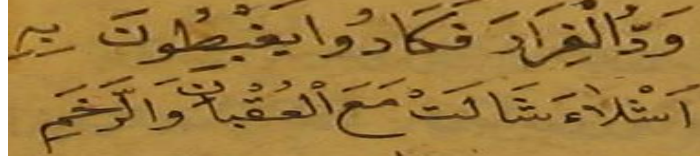 وَدُّ الْفِرَارَ فَكَادُوا يَغْبِطُونَ بِهِ
اَشْلَاءَ شَالَتْ مَعَ الْعُقْبَانِ وَالرَّخَمِ